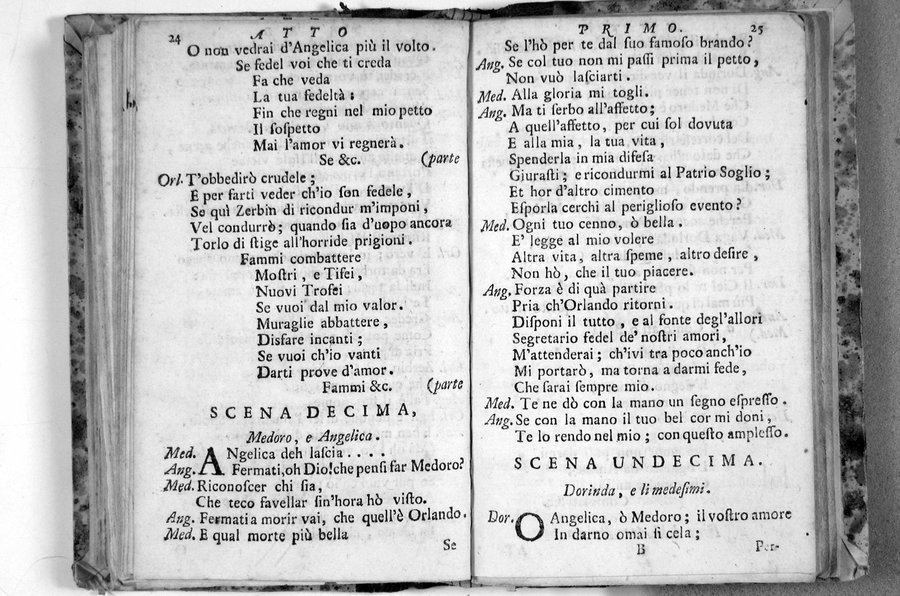 24 ATTO
O non vedrai d'Angelica più il volto.
Se fedel voi che ti creda
Fa che veda
La tua fedeltà:
Fin che regni nel mio petto
Il ſoſpetto
Mai l'amor vi regnerà.
Se &c. (parte
Orl. T'obbedirò crudele;
E per farti veder ch'io ſon fedele,
Se quì Zerbin di ricondur m'imponi,
Vel condurrò; quando ſia d'uopo ancora
Torlo di ſtige all'horride prigioni.
Fammi combattere
Moſtri, e Tifei,
Nuovi Trofei
Se vuoi dal mio valor.
Muraglie abbattere,
Disfare incanti;
Se vuoi ch'io vanti
Darti prove d'amor.
Fammi &c. (parte
SCENA DECIMA,
Medoro, e Angelica.
Med. ANgelica deh laſcia ....
Ang. Fermati, oh Dio! che penſi far Medoro?
Med. Riconoſcer chi ſia,
Che teco favellar ſin'hora hò viſto.
Ang. Fermati a morir vai, che quell'è Orlando.
Med. E qual morte più bella
Se
PRIMO. 25
Se l'hò per te dal ſuo famoſo brando?
Ang. Se col tuo non mi paſſi prima il petto,
Non vuò laſciarti.
Med. Alla gloria mi togli.
Ang. Ma ti ſerbo all'affetto;
A quell'affetto, per cui ſol dovuta
E alla mia, la tua vita,
Spenderla in mia difeſa
Giuraſti; e ricondurmi al Patrio Soglio;
Et hor d'altro cimento
Eſporla cerchi al periglioſo evento?
Med. Ogni tuo cenno, ò bella.
E' legge al mio volere
Altra vita, altra ſpeme, altro deſire,
Non hò, che il tuo piacere.
Ang. Forza è di quà partire
Pria ch'Orlando ritorni.
Diſponi il tutto, e al fonte degl'allori
Segretario fedel de' noſtri amori,
M'attenderai; ch'ivi tra poco anch'io
Mi portarò, ma torna a darmi fede,
Che ſarai ſempre mio.
Med. Te ne dò con la mano un ſegno eſpreſſo.
Ang. Se con la mano il tuo bel cor mi doni,
Te lo rendo nel mio; con queſto ampleſſo.
SCENA UNDECIMA.
Dorinda, e li medeſimi.
Dor. O Angelica, ò Medoro; il voſtro amore
In darno omai ſi cela;
B Per-